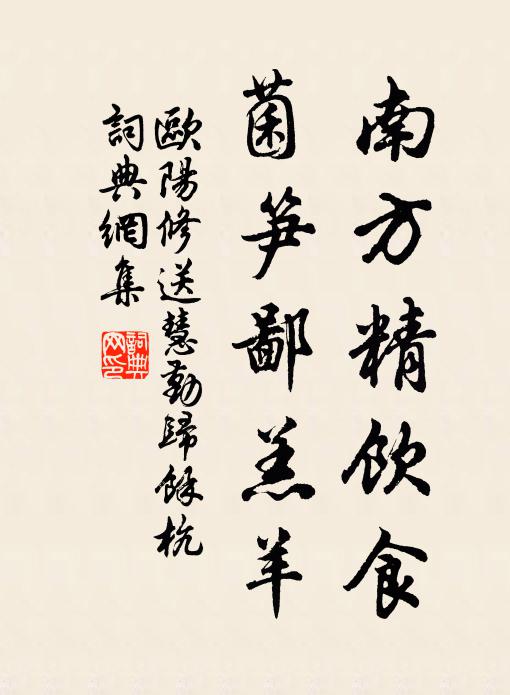 南方精飲食
菌笋鄙羔羊
歐陽修送慧勤歸餘杭
詞典網集
詞典網印